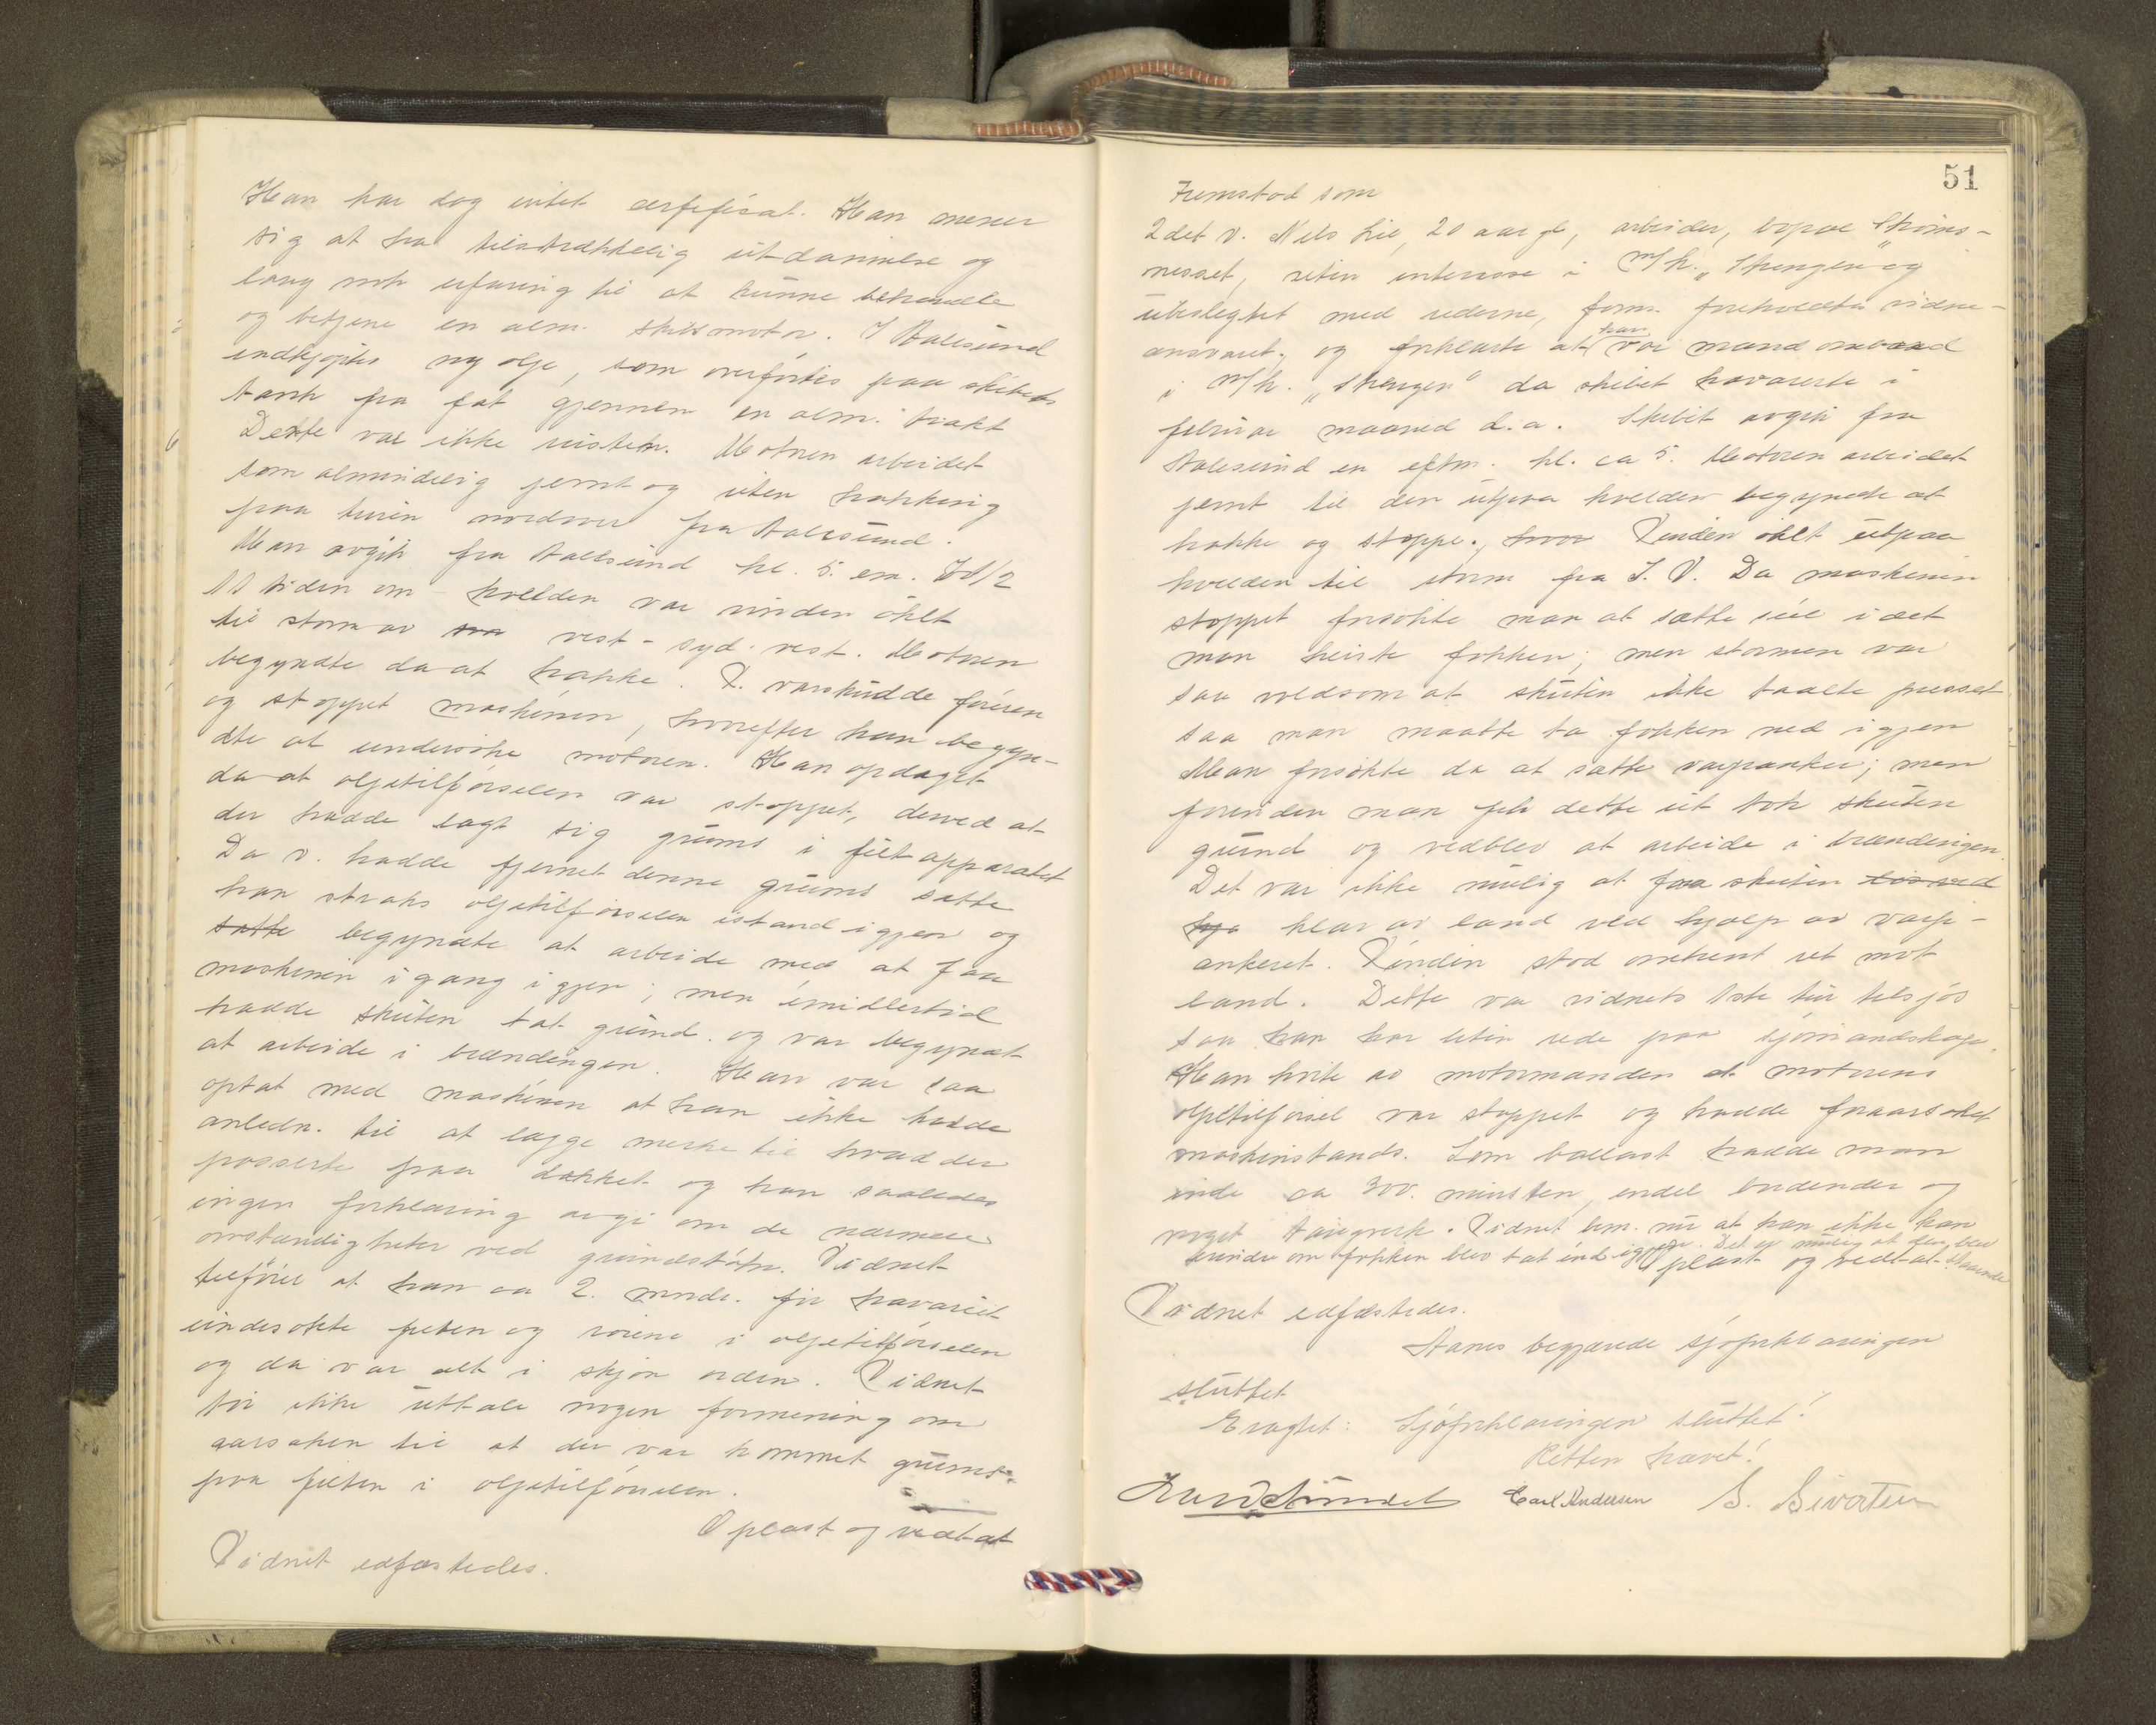 Han har dog intet certifikat. Han mener
sig at ha tilstrækkelig utdannelse og
lang nok erfaring til at kunne behandle
og betjene en alm. skibsmotor. I Aalesund
indkjøptes ny olje, som overførtes paa skibets
tank fra fat gjennem en alm. trakt
Dette var ikke Motoren arbeidet
som almindelig jemt og uten hakking
paa turen nordover fra Aalesund.
Man avgik fra Aalesund kl. 5. em. Ved 1/2
11 tiden om kvelden var vinden økt
til storm av vest-syd-vest. Motoren
begyndte da at hakke. V. varskudde føreren
og stoppet maskinen, hvorefter han begyn-
dte at undersøke motoren. Han opdaget
da at oljetilførselen var stoppet, derved at
der hadde lagt sig grums i filtapparatet
Da v. hadde fjernet denne grums satte
han straks oljetilførselen istand igjen og
satte begyndte at arbeide med at faa
maskinen igang igjen; men imidlertid
hadde skuten tat grund og var begyndt
at arbeide i brændingen. Han var saa
optat med maskinen at han ikke hadde
anledn. til at lægge merke til hvad der
passerte paa dækket og kan saaledes
ingen forklaring avgi om de nærmere
omstændigheter ved grundstøtn. Vidnet
tilføier at han ca 2. mndr. før havariet
undersøkte filteren og rørene i oljetilførselen
og da var alt i skjøn orden. Vidnet
tør ikke uttale nogen formening om
aarsaken til at der var kommet grums
paa filteren i oljetilførselen.
Oplæst og vedtat
Vidnet edfæstedes.
51
Fremstod som
2det v. Nils Lie, 20 aar gl, arbeider, bopæl Strøms-
nesset, uten interesse i M/k. "Skungen" og
ubeslegtet med rederne, form. foreholdtes vidne-
ansvaret, og forklarte at han var mand ombord
i M/k. "Skungen" da skibet havarerte i
februar maaned d.a. Skibet avgik fra
Aalesund en eftm. kl. ca 5. Motoren arbeidet
jemt til den utpaa kvelden begyndte at
hakke og stoppe. Vinden økt utpaa
kvelden til storm fra S.V. Da maskinen
stoppet forsøkte man at sætte seil idet
man heiste fokken; men stormen var
saa voldsom at skuten ikke taalte presset
saa man maatte ta fokken ned igjen
Man forsøkte da at sætte varpanker; men
forinden man fik dette ut tok skuten
grund og vedblev at arbeide i brændingen.
Det var ikke mulig at faa skuten
klar av land ved hjælp av varp-
ankeret. Vinden stod omtrent ret mot
land. Dette var vidnets 1ste tur tilsjøs
saa han har liten rede paa sjømandskap.
Han hørte av motormanden at motorens
oljetilførsel var stoppet og hadde foraarsaket
maskinstands. Som ballast hadde man
inde ca 300. endel og
noget taugverk. Vidnet bem. nu at han ikke kan
erindre om fokken blev tat ind igjen. Det er mulig at den blev
staaende
Oplæst og vedtat.
Vidnet edfæstedes.
Aanes begjærede sjøforklaringen
sluttet
Eragtet: Sjøforklaringen sluttet!
Retten hævet!
Carl Andersen S. Sivertsen